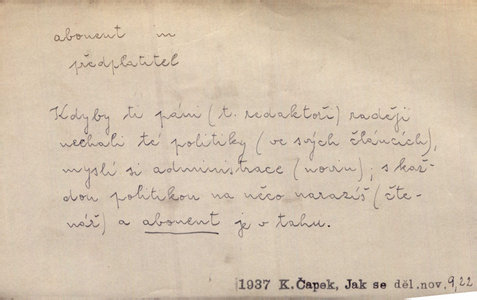 abonent in
předplatitel
Kdyby ti páni (t. redaktoři) raději
nechali té politiky (ve svých článcích),
myslí si administrace (novin), s kaž-
dou politikou na něco narazíš (čte-
nář) a abonent je v tahu.
1937 K.Čapek, Jak se děl.nov. 9,22